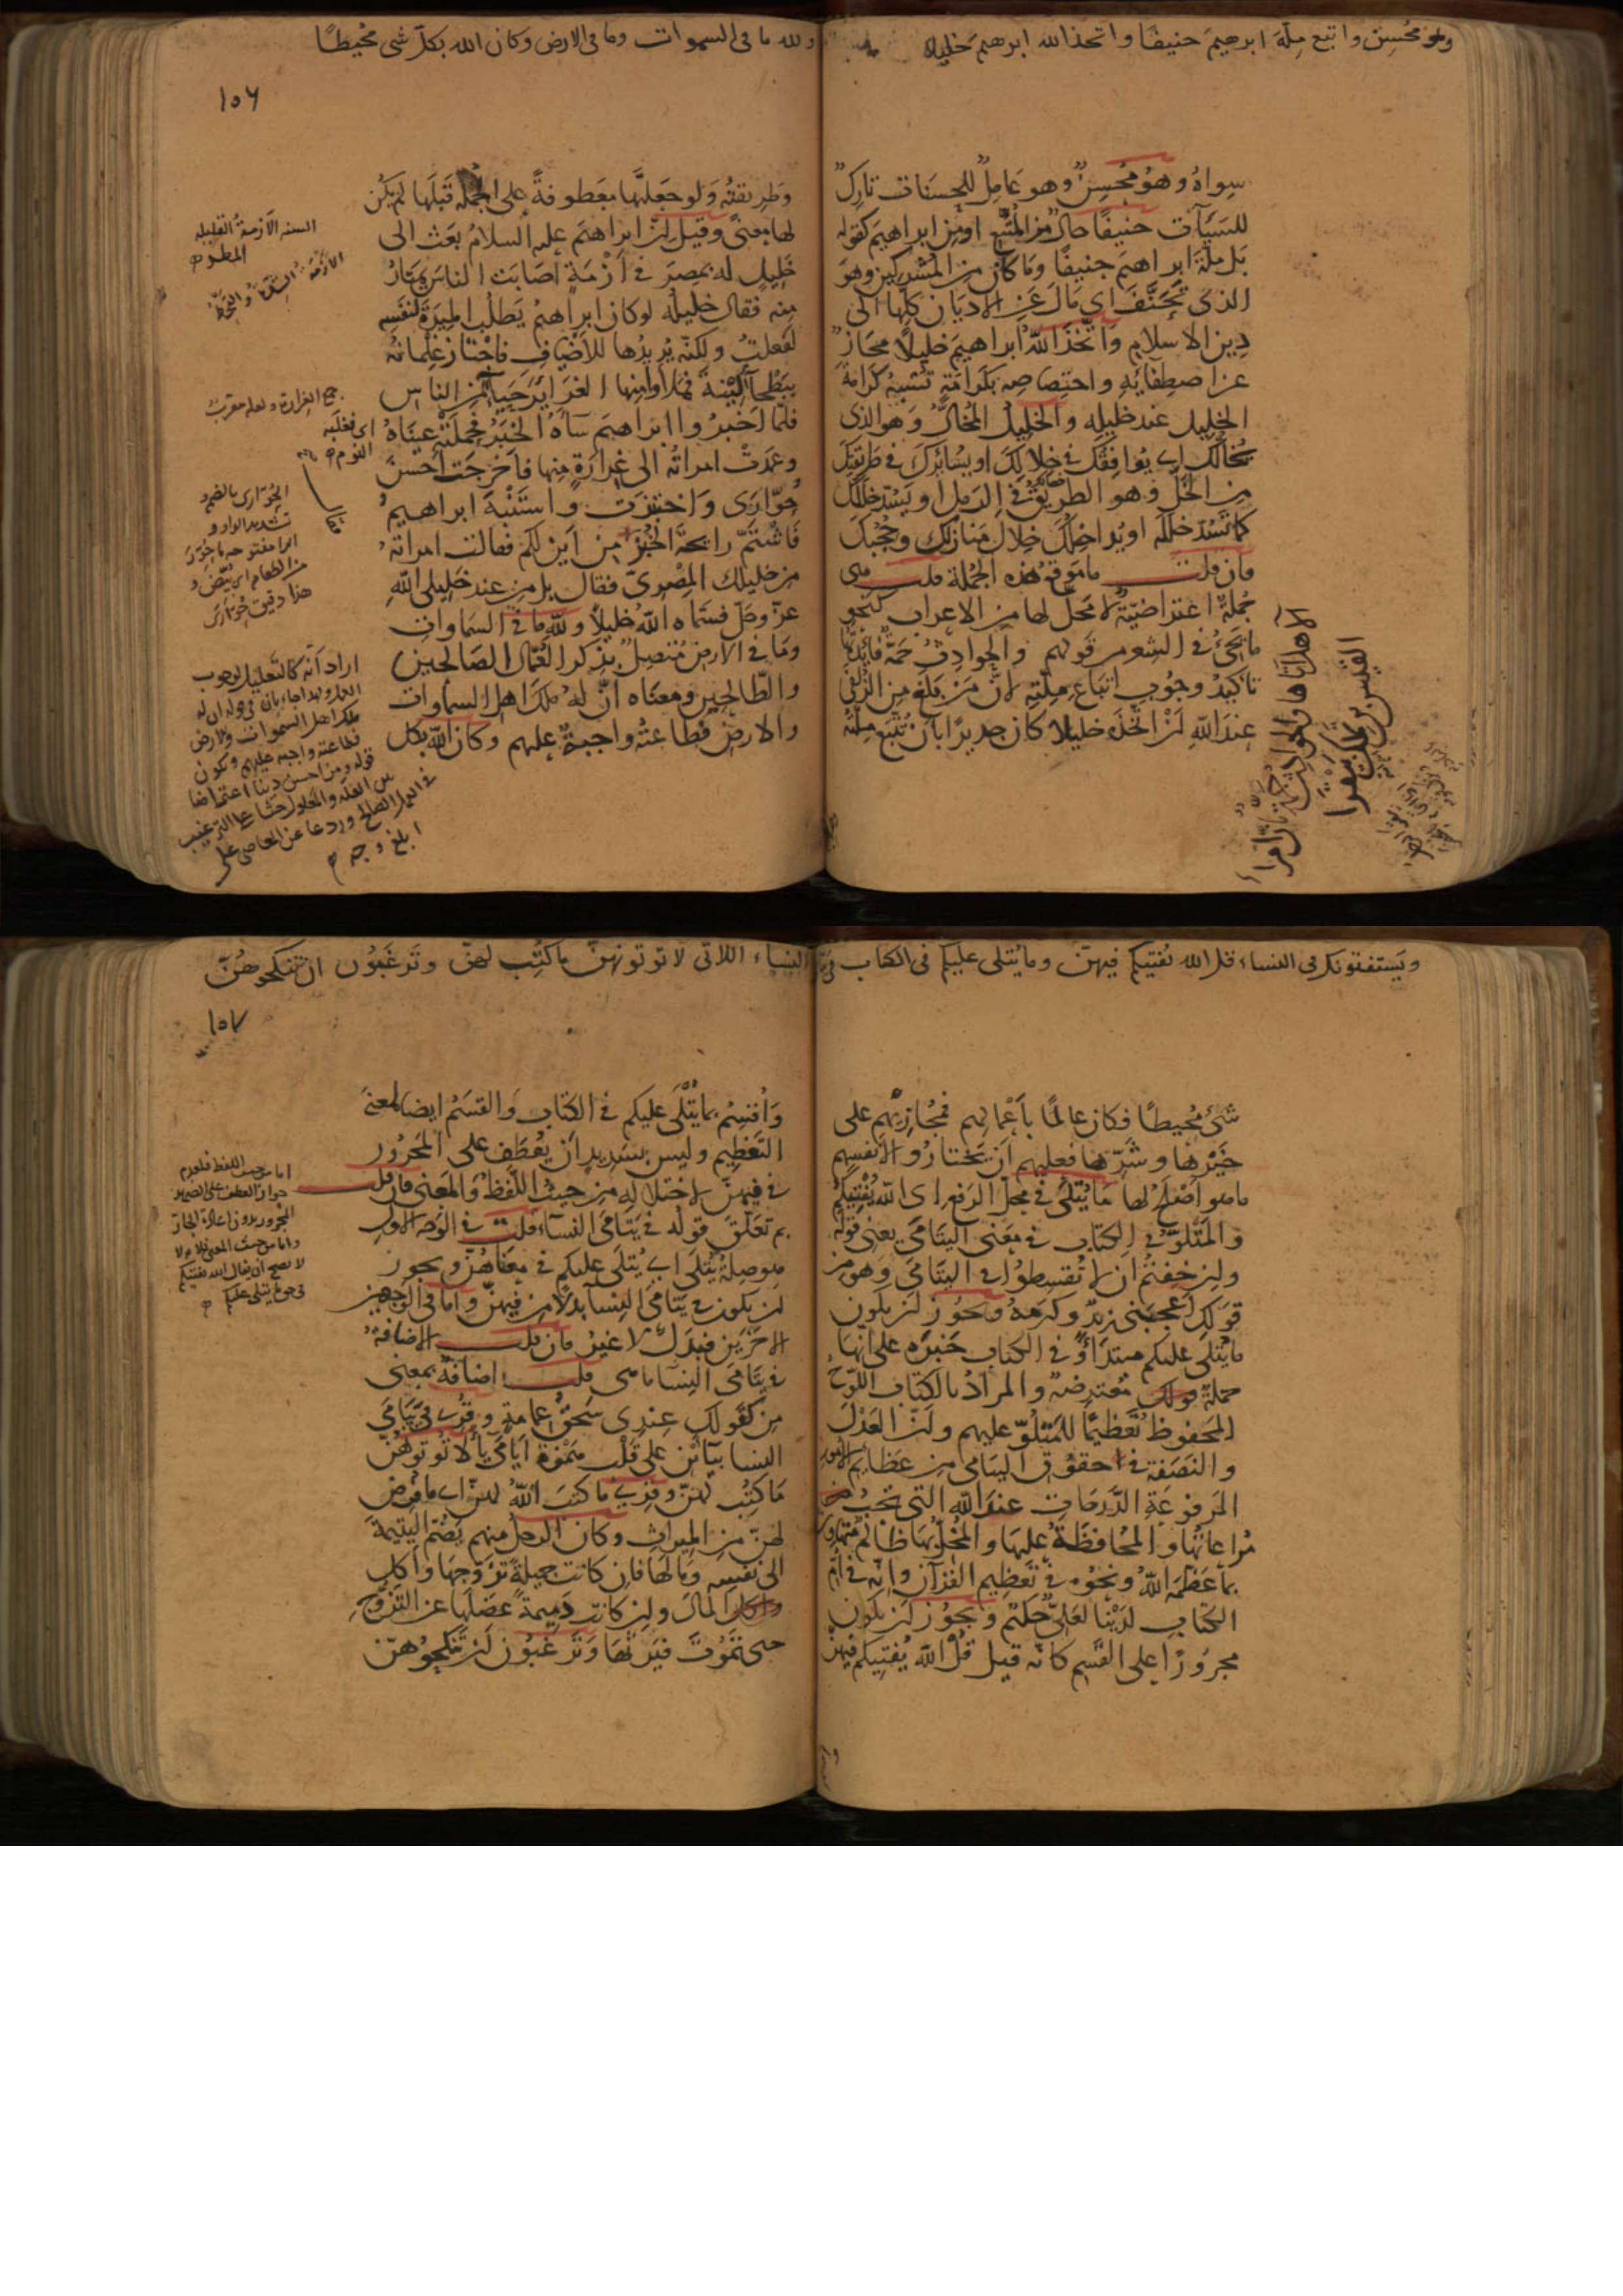 وهو محسن واتبع ملة ابرهيم حنيفا واتخذ الله ابرهيم خليلا
سواه وهو محسن وهو عامل للحسنات تارك
للسيآت حنيفا حال من المتبع او من ابراهيم كقوله
بل ملة ابراهيم حنيفا وما كان من المشركين وهو
الذى تحنف اى مال عن الاديان كلها الى
دين الاسلام واتخذ الله ابراهيم خليلا مجاز
عن اصطفائه واختصاصه بكرامة تشبه كرامة
الخليل عند خليله والخليل المخال وهو الذى
يخالك اى يوافقك فى خلالك او يسايرك فى طريقك
من الخل وهو الطريق فى الرمل او يسد خللك
كما تسد خلله او يداخلك خلال منازلك وحجبك
فان قلت ما موقع هذه الجملة قلت هى
جملة اعتراضية لا محل لها من الاعراب كنحو
ما يجىء فى الشعر من قولهم والحوادث جمة فائدتها
تاكيد وجوب اتباع ملته لان من بلغ من الزلفى
عند الله ان اتخذه خليلا كان جديرا بان تتبع ملته
الا هل اتاها والحوادث جمة بان امرا
القيس بن تملك بيقرا
ولله ما فى السموات وما فى الارض وكان الله بكل شى محيطا
١٥٦
وطريقته ولو جعلتها معطوفة على الجملة قبلها لم يكن
لها معنى وقيل ان ابراهيم عليه السلام بعث الى
خليل له بمصر فى ازمة اصابت الناس يمتار
منه فقال خليله لو كان ابراهيم يطلب الميرة لنفسه
لفعلت ولكنه يريدها للاضياف فاجتاز غلمانه
ببطحآ لينة فملاوا منها الغرائر حيآ من الناس
فلما اخبروا ابراهيم ساه الخبر فحملته عيناه
وعمدت امراته الى غرارة منها فاخرجت احسن
حوارى واختبزت واستنبه ابراهيم
فاشتم رايحة الخبز من اين لكم فقالت امراته
من خليلك المصرى فقال بل من عند خليلى الله
عز وجل فسماه الله خليلا ولله ما فى السماوات
وما فى الارض متصل بذكر العمال الصالحين
والطالحين ومعناه ان له ملك اهل السماوات
والارض فطاعته واجبة عليهم وكان الله بكل
السنه الازمة القليله
المطر
الازمة الشدة والقحط
جمع الغرارة ولعله معرب
اى فغلبه
النوم
الحوارى بالضم و
تشديد الواو و
الرا مفتوحه ما حور
من الطعام اى بيض و
هذا دقيق حوارى
اراد انه كالتعليل لوجوب
ملك اهل السموات والارض
فطاعته واجبه عليهم وكون
قوله ومن احسن دينا اعتراضا
بين العله والمعلول حثا على الترغيب
فى العمل الصالح وردعا عن المعاصى على
ابلغ وجه
ويستفتونك فى النساء قل الله يفتيكم فيهن وما يتلى عليكم فى الكتاب فى
شىء محيطا فكان عالما باعمالهم فمجازيهم على
خيرها وشرها فعليهم ان يختاروا لانفسهم
ما هو اصلح لها ما يتلى فى محل الرفع اى الله يفتيكم
والمتلو فى الكتاب فى معنى اليتامى يعنى قوله
وان خفتم ان لا تقسطوا فى اليتامى وهو من
قولك اعجبنى زيد وكرمه ويجوز ان يكون
ما يتلى عليكم مبتداء فى الكتاب خبره على انها
جملة معترضة والمراد بالكتاب اللوح
المحفوظ تعظيما للمتلو عليهم وان العدل
والنصفة فى حقوق اليتامى من عظائم الامور
المرفوعة الدرجات عند الله التى تجب
مراعاتها والمحافظة عليها والمخل بها ظالم متهاون
بما عظمه الله ونحوه فى تعظيم القرآن وانه فى ام
الكتاب لدينا لعلى حكيم ويجوز ان يكون
مجرورا على القسم كانه قيل قل الله يفتيكم فيهن
النساء اللاتى لا توتونهن ما كتب لهن وترغبون ان تنكحوهن
١٥٧
واقسم بما يتلى عليكم فى الكتاب والقسم ايضا لمعنى
التعظيم وليس بسديد ان يعطف على المجرور
فى فيهن لاختلاله من حيث اللفظ والمعنى فان قلت
بم تعلق قوله فى يتامى النساء قلت فى الوجه الاول
هو صلة يتلى اى يتلى عليكم فى معناهن ويجوز
ان يكون فى يتامى النسا بدلا من فيهن واما فى الوجهين
الاخرين فبدل لا غير فان قلت الاضافة
فى يتامى النسآ ما هى قلت اضافة بمعنى
من كقولك عندى سحق عمامة وقرى فى ييامى
النسا بيائين على قلب همزة ايامى يآ لا توتونهن
ما كتب لهن وقرى ما كتب الله لهن اى ما فرض
لهن من الميراث وكان الرجل منهم يضم اليتيمة
الى نفسه ومالها فان كانت جميلة تزوجها واكل
المال وان كانت دميمة عضلها عن التزوج
حتى تموت فيرثها وترغبون ان تنكحوهن
اما من حيث اللفظ فلعدم
جواز العطف على الضمير
المجرور بدون اعادة الجار
واما من حيث المعنى فلانه لا
لا يصح ان يقال الله يفتيكم
فى حق ما يتلى عليكم